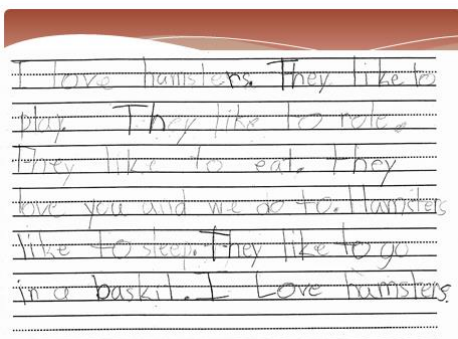 I love hamsters. They like to
play. They like to role.
They like to eat. they
love you and we do to. Hamsters
like to sleep. They like to go
in a baskit. I Love hamsters.